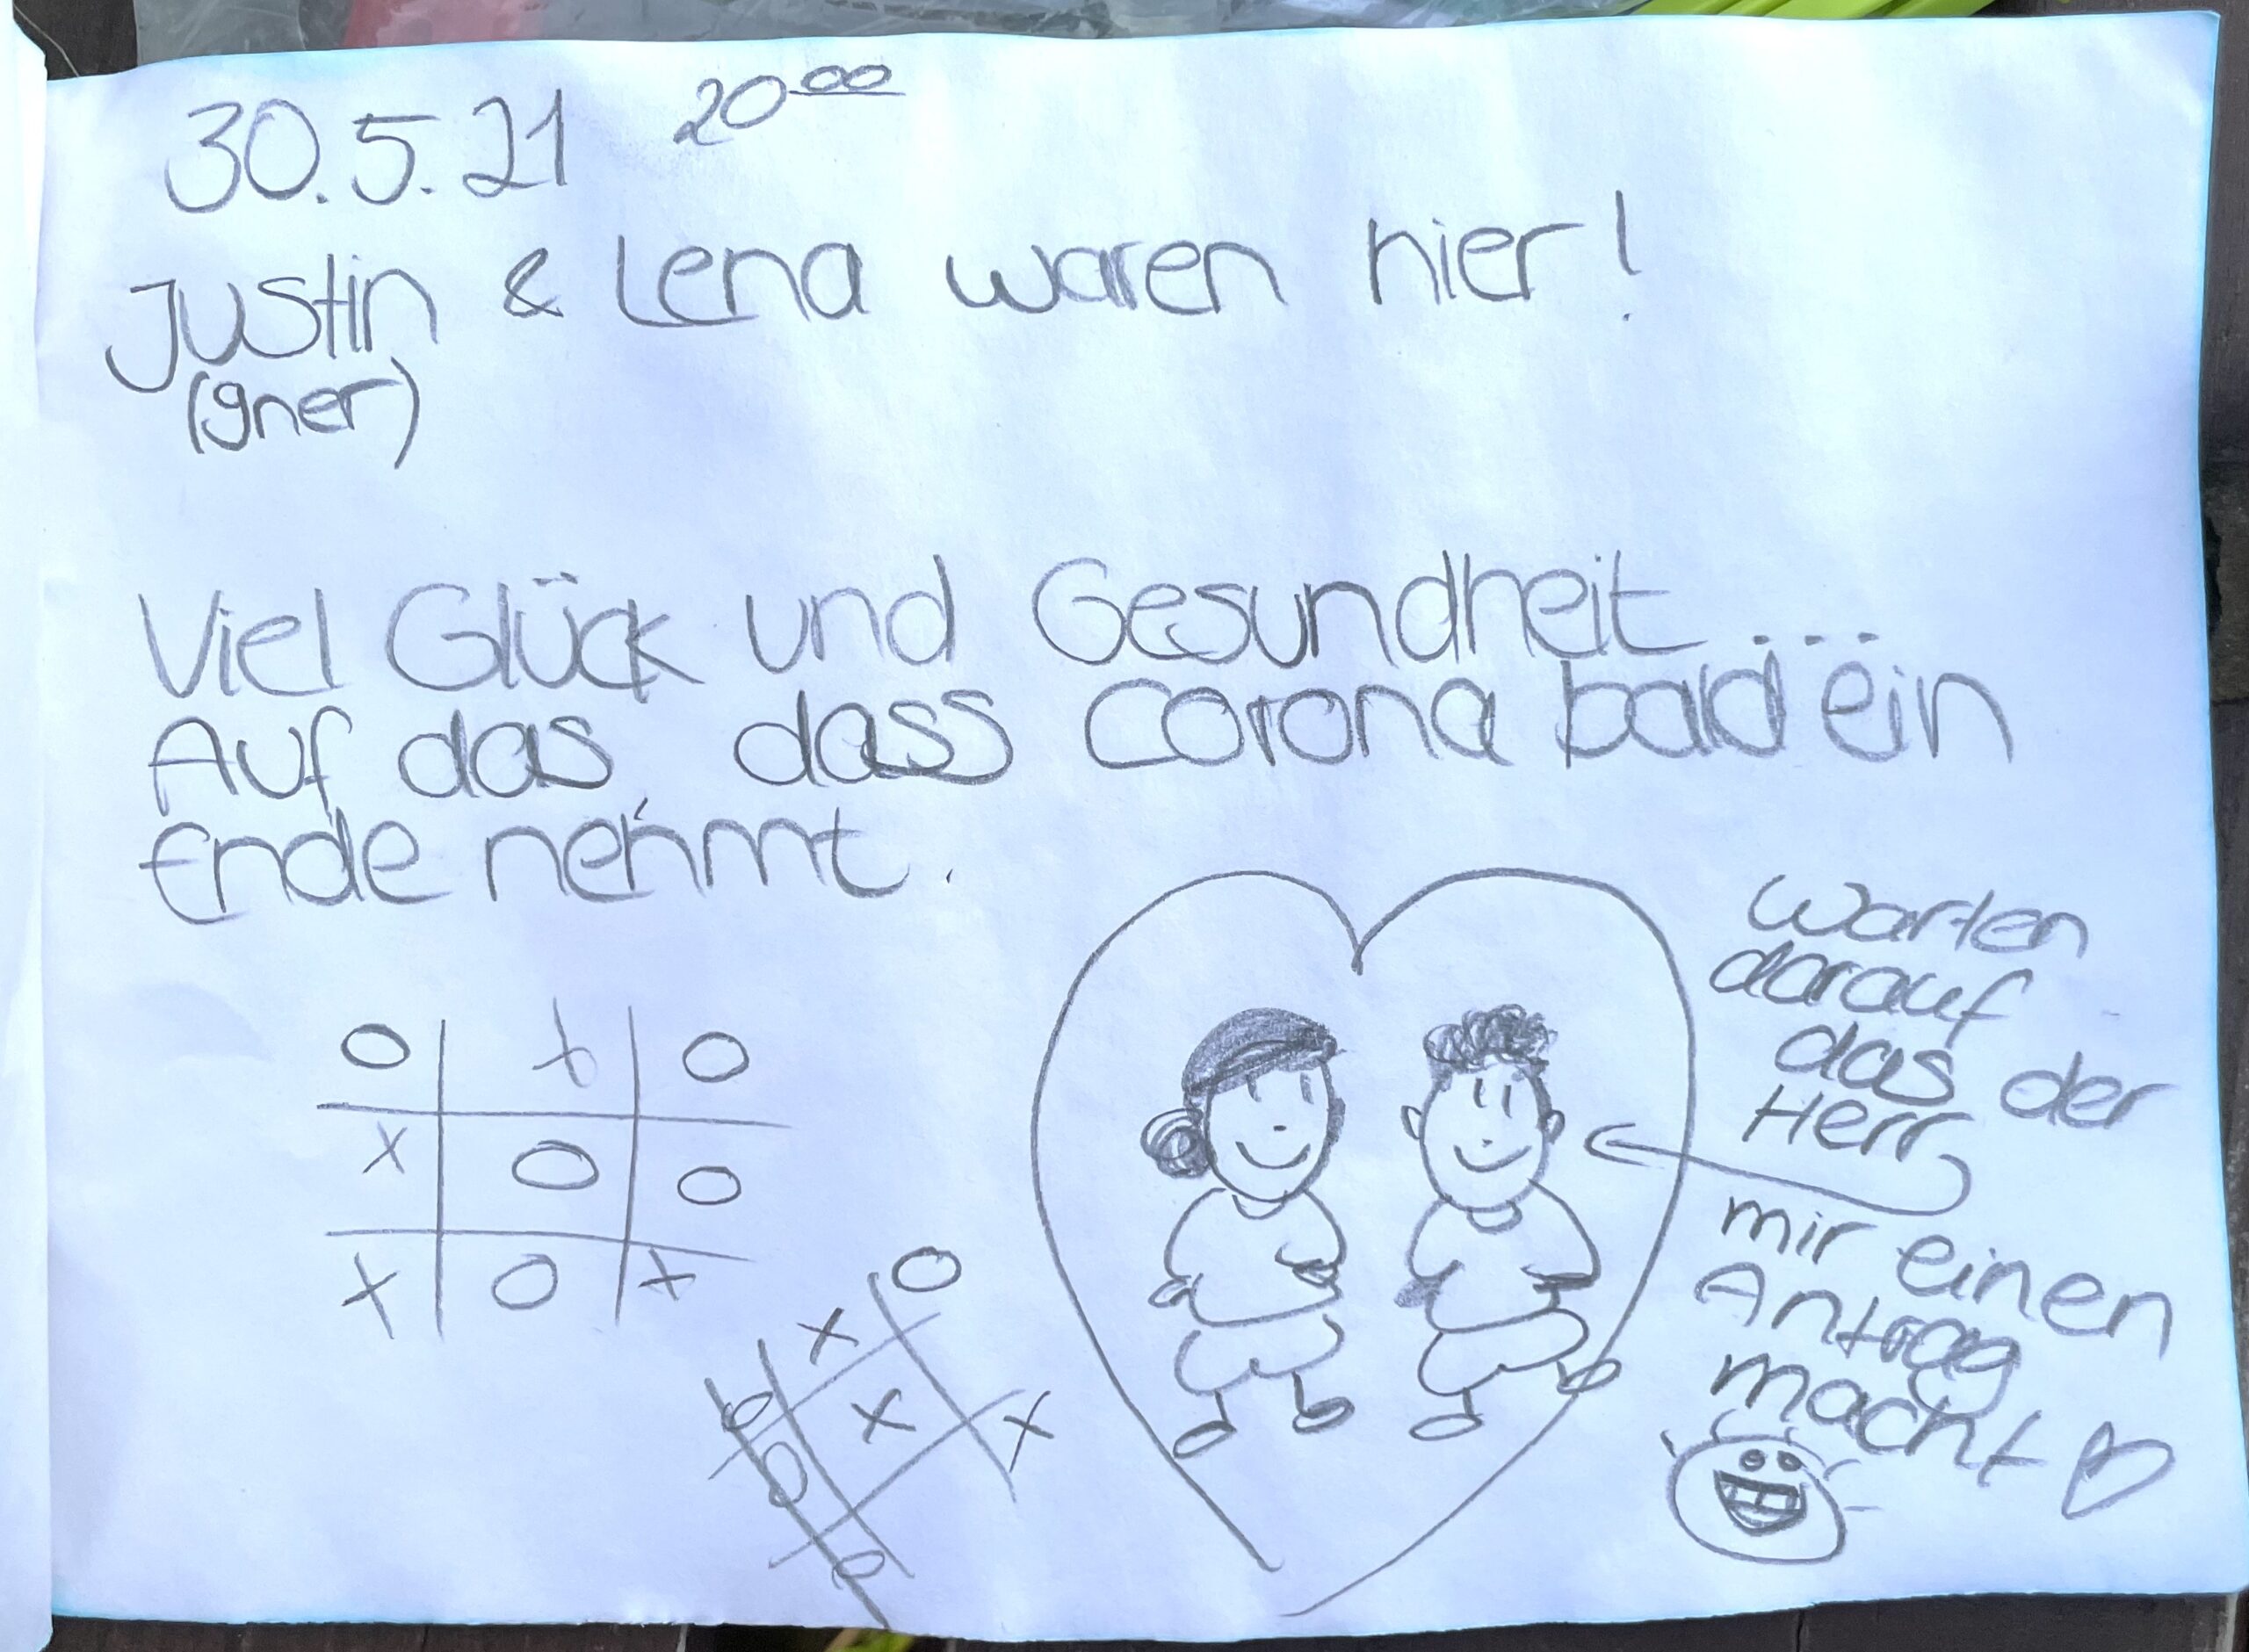 30.5.21 20⁰⁰
Justin & Lena waren hier!
(gner)
Viel Glück und Gesundheit...
Auf das, dass Corona bald ein
Ende nehmt.
Warten
darauf
das der
Herr
mir einen
Antrag
macht ♡
O X O
X O O
X O X
X O
O X X
O
O